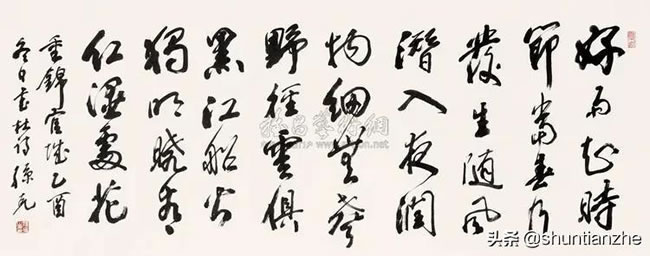 好雨知時
節當春乃
發生随風
潛入夜潤
物細無聲
野徑雲俱
黑江船火
獨明曉看
紅濕處花
重錦官城乙酉
冬日書杜詩
头条 @shuntianzhe